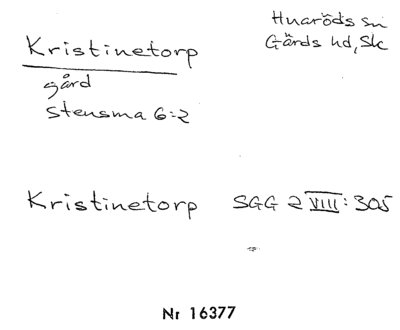 Kristinetorp
Hnaröds sn
Gärds hd, Sk
gård
Stensma 6:2
Kristinetorp SGG 2 VIII: 305
Nr 16377